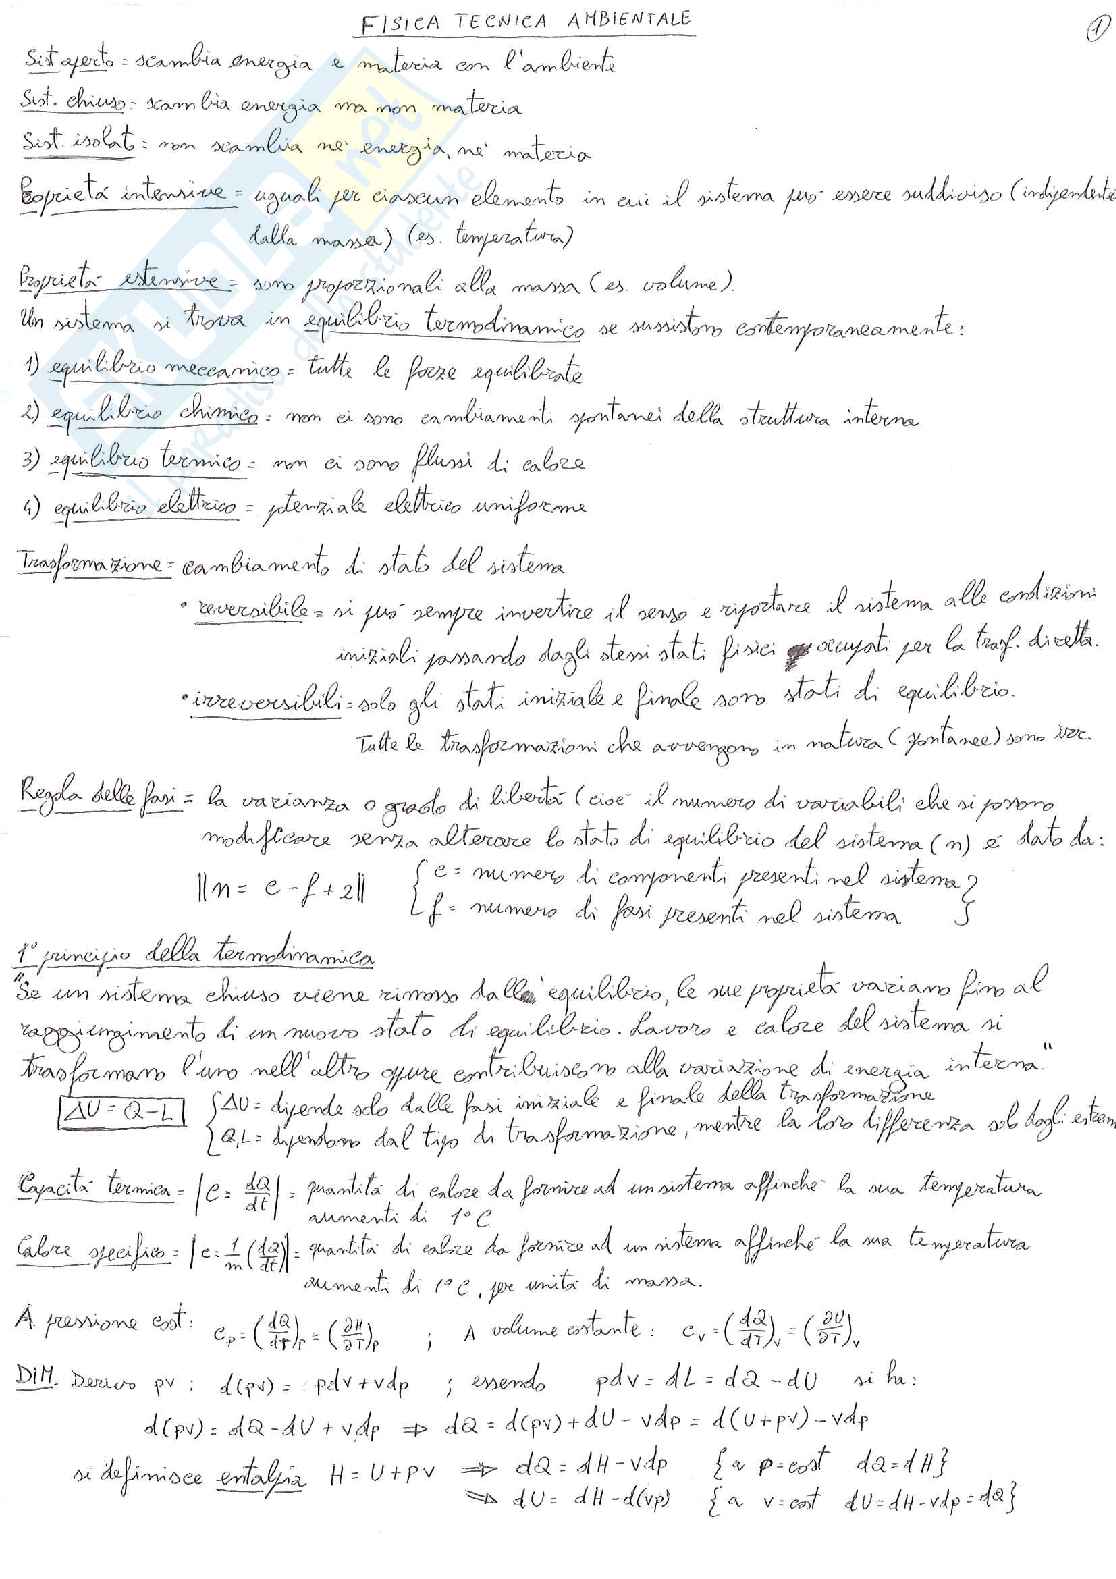 FISICA TECNICA AMBIENTALE
1
Sist aperto = scambia energia e materia con l'ambiente
Sist. chiuso = scambia energia ma non materia
Sist. isolato = non scambia ne' energia, ne' materia
Proprietà intensive = uguali per ciascun elemento in cui il sistema può essere suddiviso (indipendente
dalla massa) (es. temperatura)
Proprietà estensive = sono proporzionali alla massa (es. volume).
Un sistema si trova in equilibrio termodinamico se sussistono contemporaneamente:
1) equilibrio meccanico = tutte le forze equilibrate
2) equilibrio chimico = non ci sono cambiamenti spontanei della struttura interna
3) equilibrio termico = non ci sono flussi di calore
4) equilibrio elettrico = potenziale elettrico uniforme
Trasformazione = cambiamento di stato del sistema
• reversibile = si può sempre invertire il senso e riportare il sistema alle condizioni
iniziali passando dagli stessi stati fisici occupati per la trasf. diretta.
• irreversibili = solo gli stati iniziale e finale sono stati di equilibrio.
Tutte le trasformazioni che avvengono in natura (spontanee) sono irr.
Regola delle fasi = la varianza o grado di libertà (cioè il numero di variabili che si possono
modificare senza alterare lo stato di equilibrio del sistema (n) è dato da:
||n = c - f + 2|| { c = numero di componenti presenti nel sistema }
{ f = numero di fasi presenti nel sistema }
1° principio della termodinamica
"Se un sistema chiuso viene rimosso dall' equilibrio, le sue proprietà variano fino al
raggiungimento di un nuovo stato di equilibrio. Lavoro e calore del sistema si
trasformano l'uno nell'altro oppure contribuiscono alla variazione di energia interna."
ΔU = Q - L { ΔU = dipende solo dalle fasi iniziale e finale della trasformazione
{ Q, L = dipendono dal tipo di trasformazione, mentre la loro differenza solo dagli estremi
Capacità termica = |C = dQ/dt| = quantità di calore da fornire ad un sistema affinché la sua temperatura
aumenti di 1°C
Calore specifico = |c = 1/m (dQ/dt)| = quantità di calore da fornire ad un sistema affinché la sua temperatura
aumenti di 1°C, per unità di massa.
A pressione cost: cp = (dQ/dT)p = (∂H/∂T)p ; A volume costante: cv = (dQ/dT)v = (∂U/∂T)v
DIM. Derivo pv : d(pv) = pdv + vdp ; essendo pdv = dL = dQ - dU si ha:
d(pv) = dQ - dU + vdp ⇒ dQ = d(pv) + dU - vdp = d(U + pv) - vdp
si definisce entalpia H = U + pv ⇒ dQ = dH - vdp { a p = cost dQ = dH }
⇒ dU = dH - d(vp) { a v = cost dU = dH - vdp = dQ }